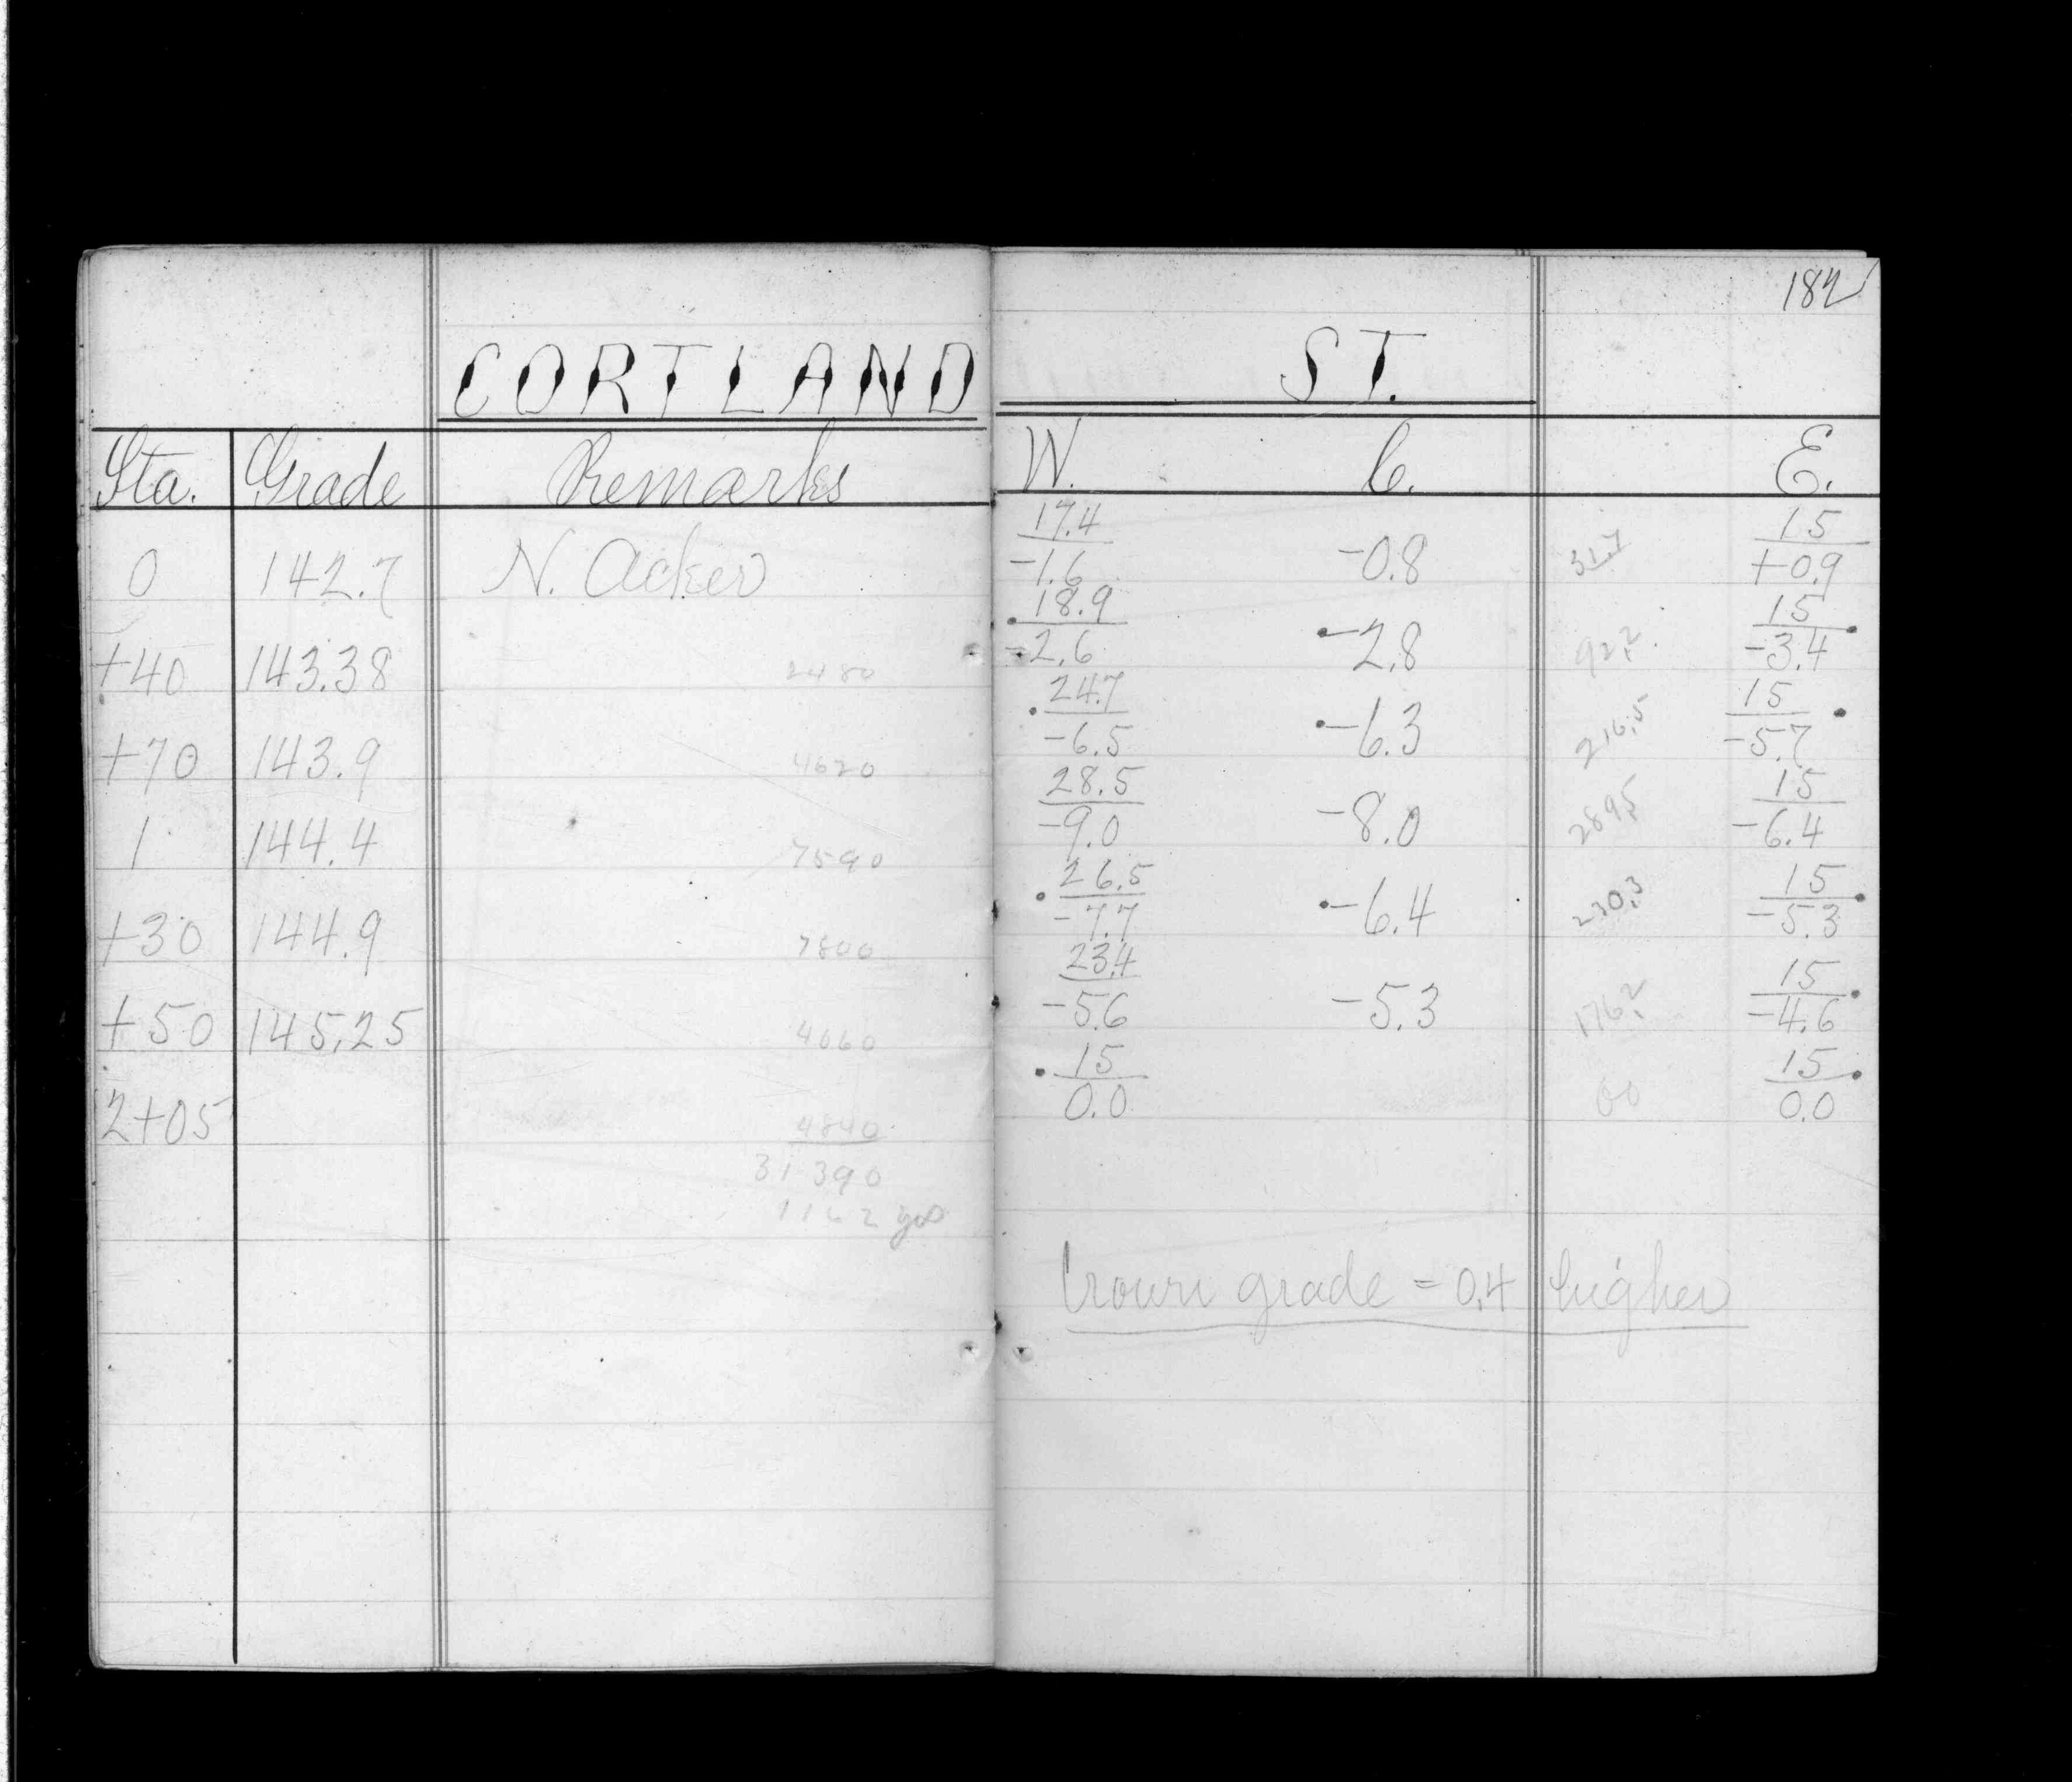 182
CORTLAND ST.
Sta. Grade Remarks W. C. E.
17.4 15
0 142.7 N. Acker -1.6 -0.8 31.7 +0.9
18.9 15
+40 143.38 2480 -2.6 -2.8 92.2 -3.4
24.7 15
+70 143.9 4620 -6.5 -6.3 216.5 -5.7
28.5 15
1 144.4 7590 -9.0 -8.0 289.5 -6.4
26.5 15
+30 144.9 7800 -7.7 -6.4 230.3 -5.3
23.4 15
+50 145.25 4060 -5.6 -5.3 176.2 -4.6
15 15
2+05 4840 0.0 00 0.0
31390
1162 yds
Crown grade = 0.4 higher